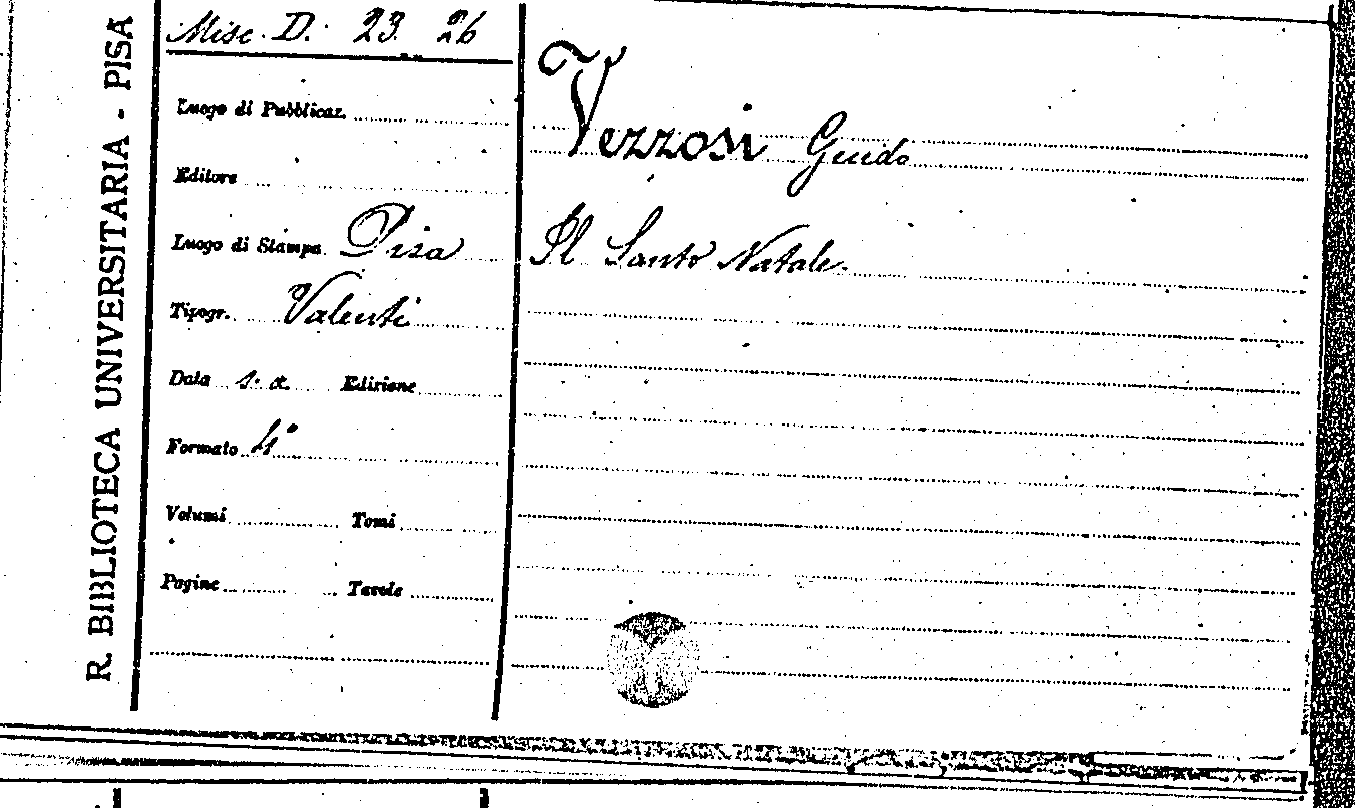 R. BIBLIOTECA UNIVERSITARIA - PISA
Misc. D. 23. 26
Luogo di Pubblicaz.
Editore
Luogo di Stampa Pisa
Tipogr. Valenti
Data s. a. Edizione
Formato 4°
Volumi Tomi
Pagine Tavole
Vezzosi Guido
Il Santo Natale.